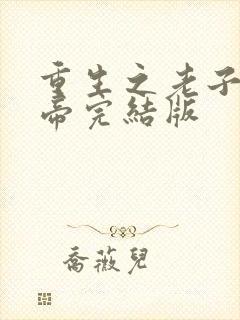 重生之老子
帝完結版
喬薇兒